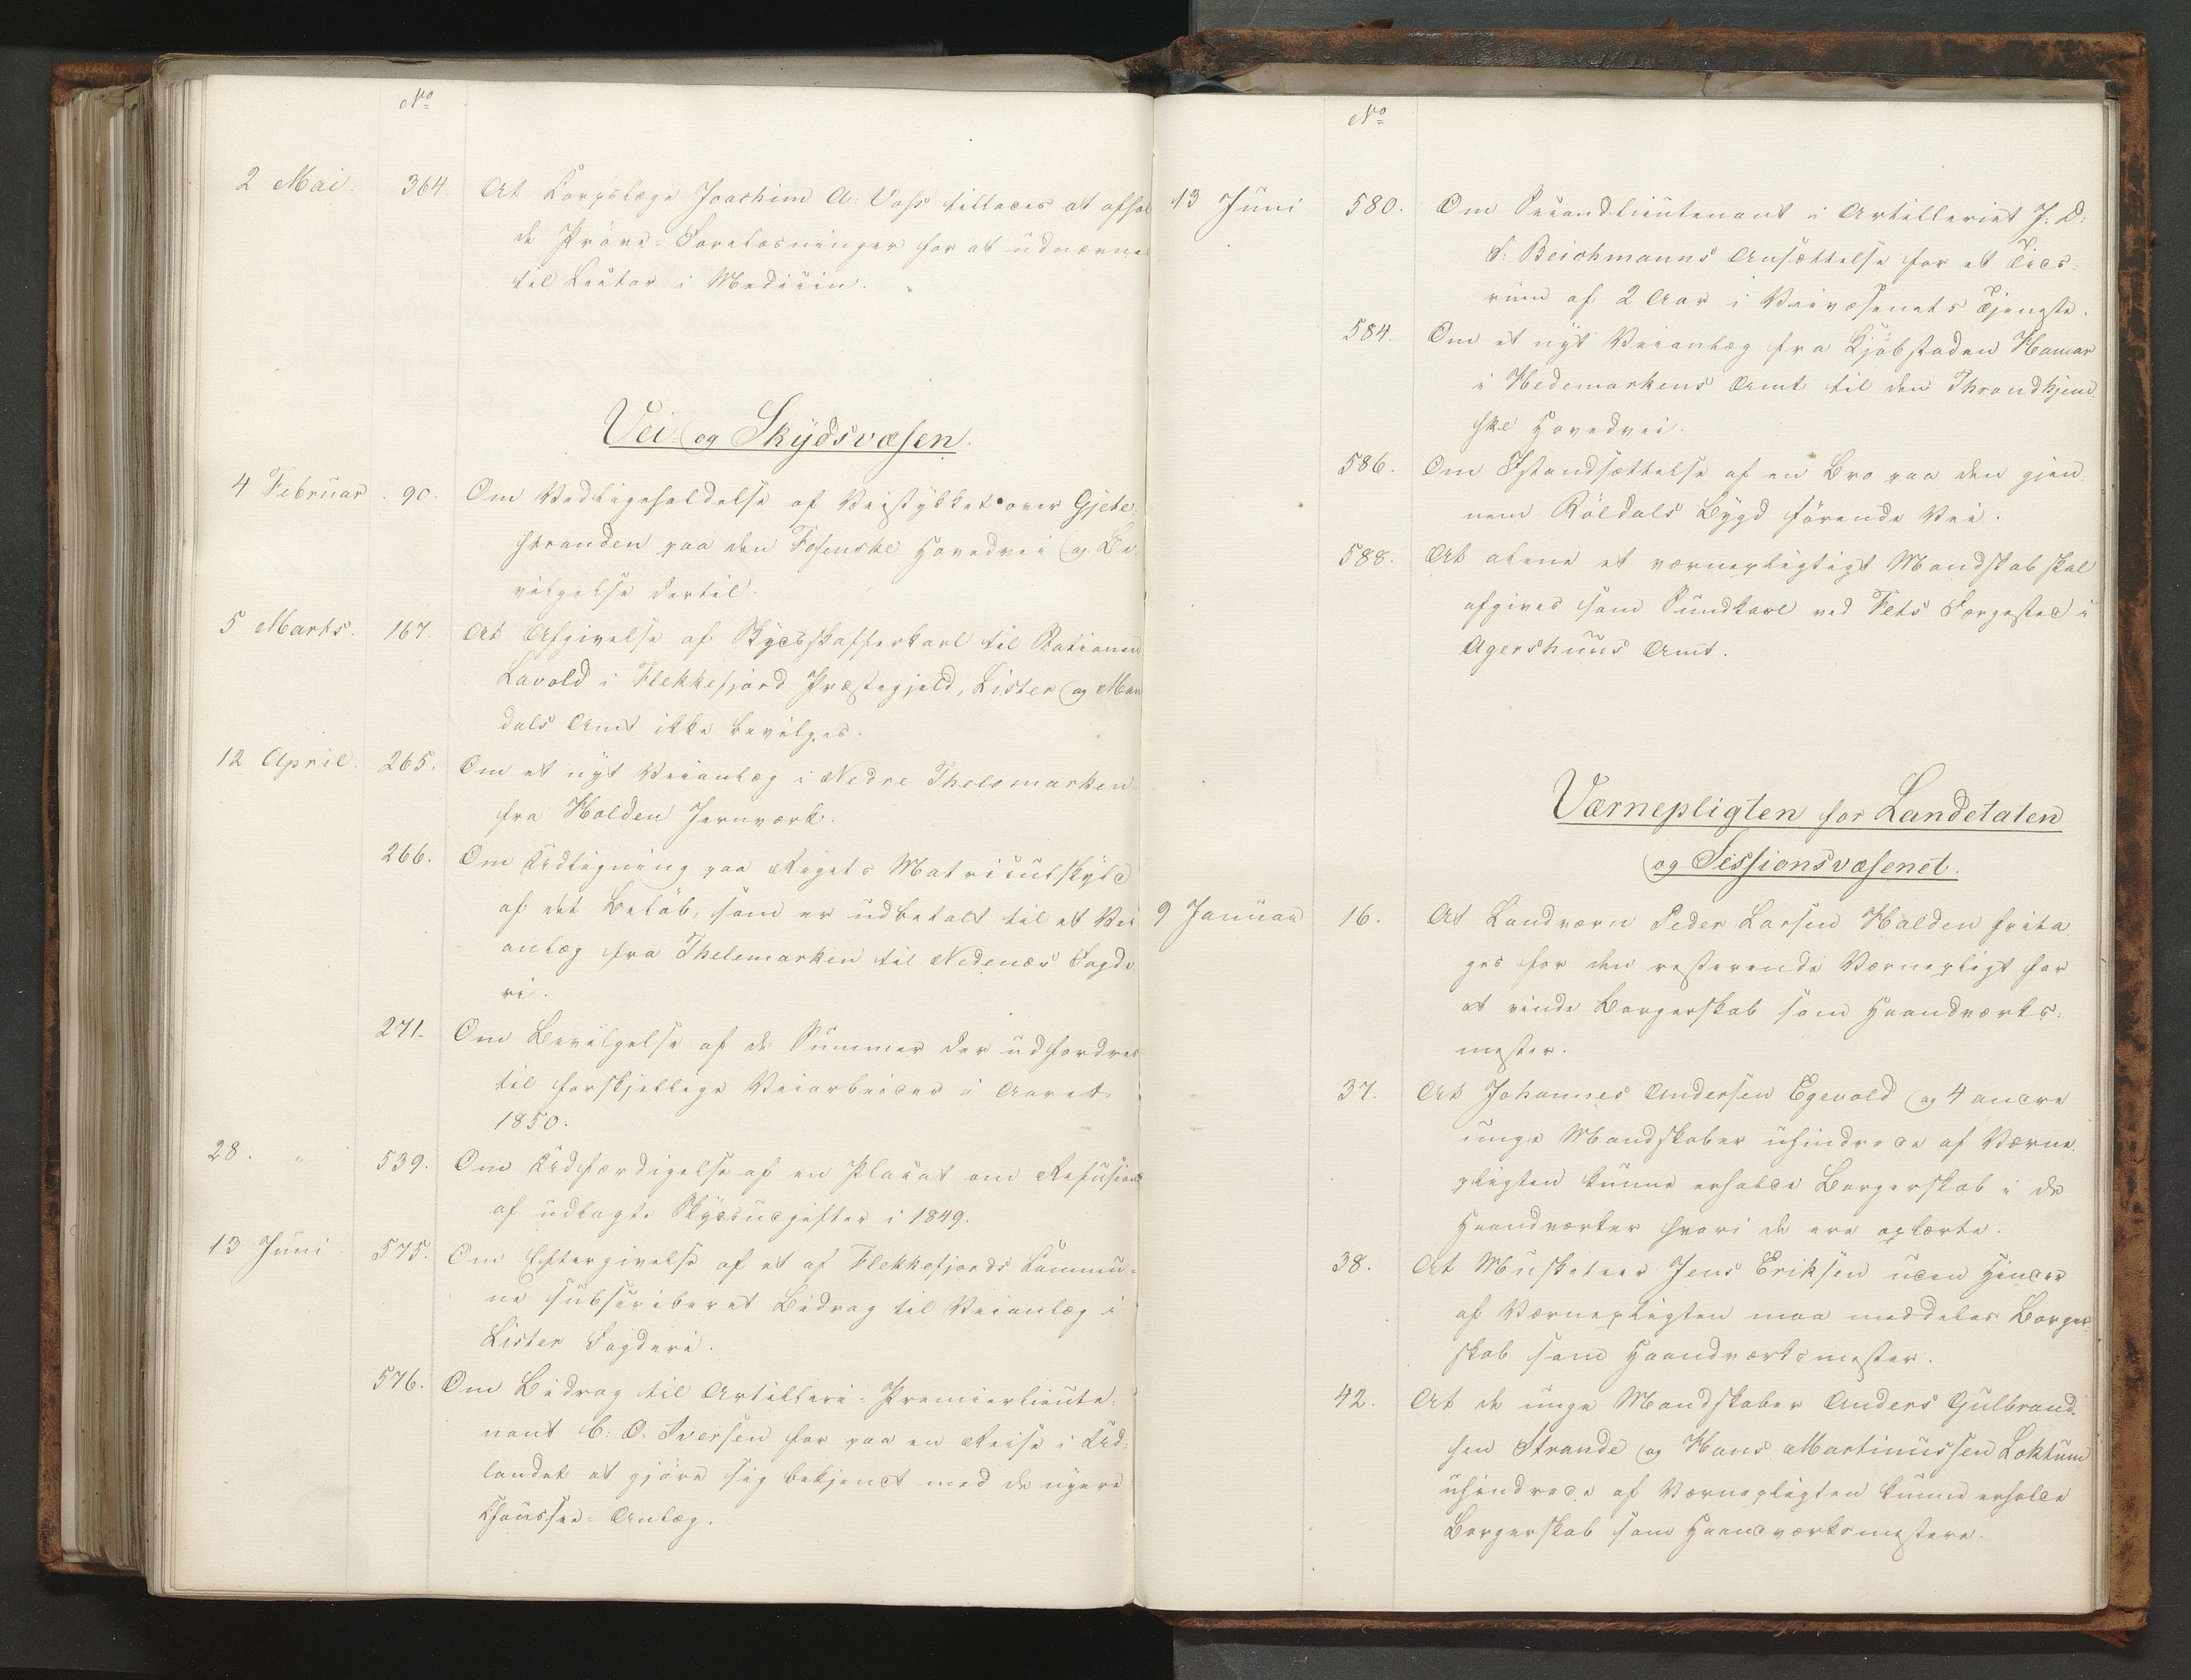 No
2 Mai. 364. At Korpslæge Joachim A: Voss tillades at afhol
de Prøve-Forelæsninger for at udnævnes
til Lector i Medicin.
Vei og Skydsvæsen.
4 Februar. 90. Om Vedligeholdelse af Veistykket over Gjete
stranden paa den Fosenske Hovedvei og Be-
vilgelse dertil.
5 Marts. 167. At Afgivelse af Skydsskafferkarl til Stationen
Lavold i Flekkefjord Præstegjeld, Lister og Man
dals Amt ikke bevilges.
12 April. 265. Om et nyt Veianlæg i Nedre Thelemarken
fra Holden Jernværk.
266. Om Udligning paa Rigets Matriculskyld
af det Beløb, som er udbetalt til et Vei
anlæg fra Thelemarken til Nedenæs Fogde
ri.
271. Om Bevilgelse af de Summer der udfordres
til forskjellige Veiarbeider i Aaret
1850.
28. " 539. Om Udfærdigelse af en Placat om Refusion
af udlagte Skydsudgifter i 1849.
13 Juni 575. Om Eftergivelse af et af Flekkefjords Commu-
ne subscriberet Bidrag til Veianlæg i
Lister Fogderi.
576. Om Bidrag til Artilleri-Premierlieute-
nant C: O. Iversen for paa en Reise i Ud-
landet at gjøre sig bekjendt med de nyere
Chaussee-Anlæg.
No
13 Juni 580. Om Secondlieutenant i Artilleriet J: D:
F: Beichmanns Ansættelse for et Tids-
rum af 2 Aar i Veivæsenets Tjeneste.
584. Om et nyt Veianlæg fra Kjøbstaden Hamar
i Hedemarkens Amt til den Throndhjem
ske Hovedvei.
586. Om Istandsættelse af en Bro paa den gjen
nem Röldals Bygd førende Vei.
588. At alene et værnepligtigt Mandskab skal
afgives som Sundkarl ved Fets Færgested i
Agershuus Amt.
Værnepligten for Landetaten
og Sessionsvæsenet.
9 Januar 16. At Landværn Peder Larsen Halden frita
ges for den resterende Værnepligt for
at vinde Borgerskab som Haandværks-
mester.
37. At Johannes Andersen Egevold og 4 andre
unge Mandskaber uhindrede af Værne
pligten kunne erholde Borgerskab i de
Haandværker hvori de ere oplærte.
38. At Musketeer Jens Eriksen uden Hinder
af Værnepligten maa meddeles Borger
skab som Haandværksmester.
42. At de unge Mandskaber Anders Gulbrand-
sen Strande og Hans Martinussen Loktum
uhindrede af Værnepligten kunne erholde
Borgerskab som Haandværksmestere.